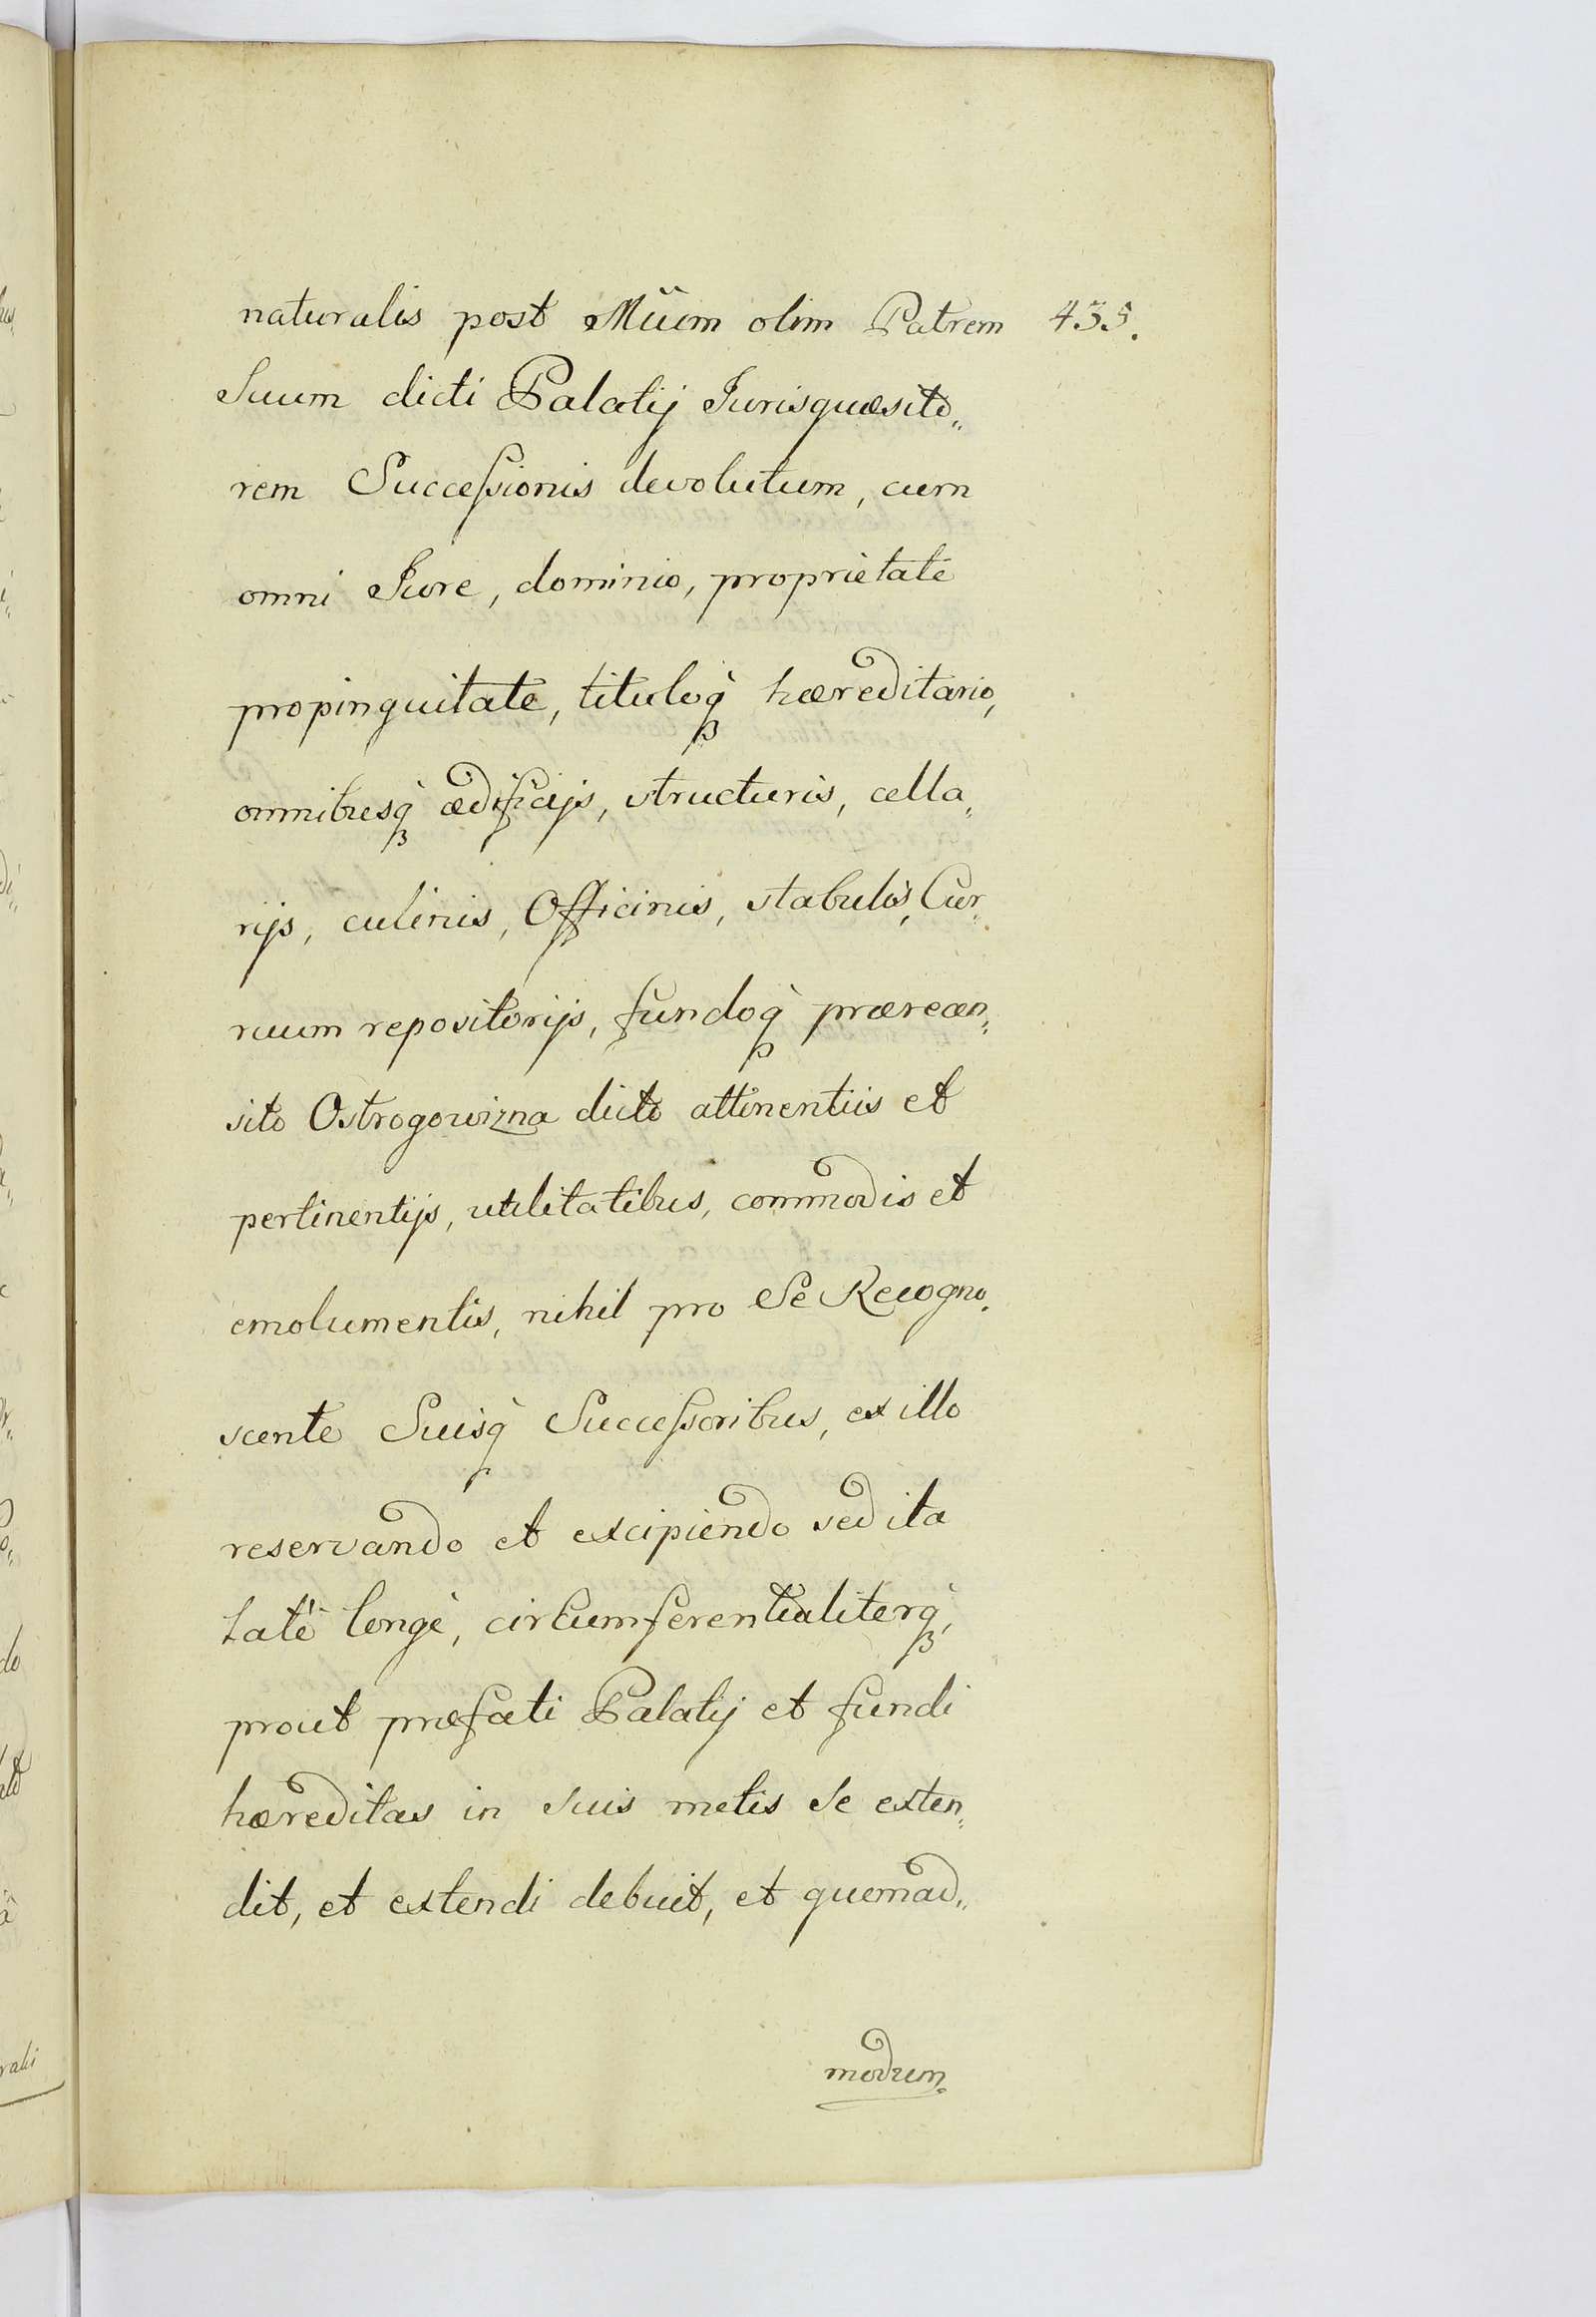 naturalis post Mūum olim Patrem 435.
Suum dicti Palatij Jurisquæsito„
rem Successionis devolutum, cum
omni Jure, dominio, proprietate
propinquitate, tituloq́ꝫ hæreditario,
omnibusq́ꝫ ædificijs, structuris, cella„
rijs, culinis, Officinis, stabulis, Cur„
ruum repositorijs, fundoq́ꝫ præreæn„
sito Ostrogowizna dicto attinentiis et
pertinentijs, utilitatibus, commodis et
emolumentis, nihil pro Se Recogno„
scente Suisq́ Successoribus, ex illo
reservando et excipiendo sed ita
latè longè, circumferentialiterq́ꝫ,
prout præfati Palatij et fundi
hæreditas in suis metis se exten„
dit, et extendi debuit, et quemad„
modum